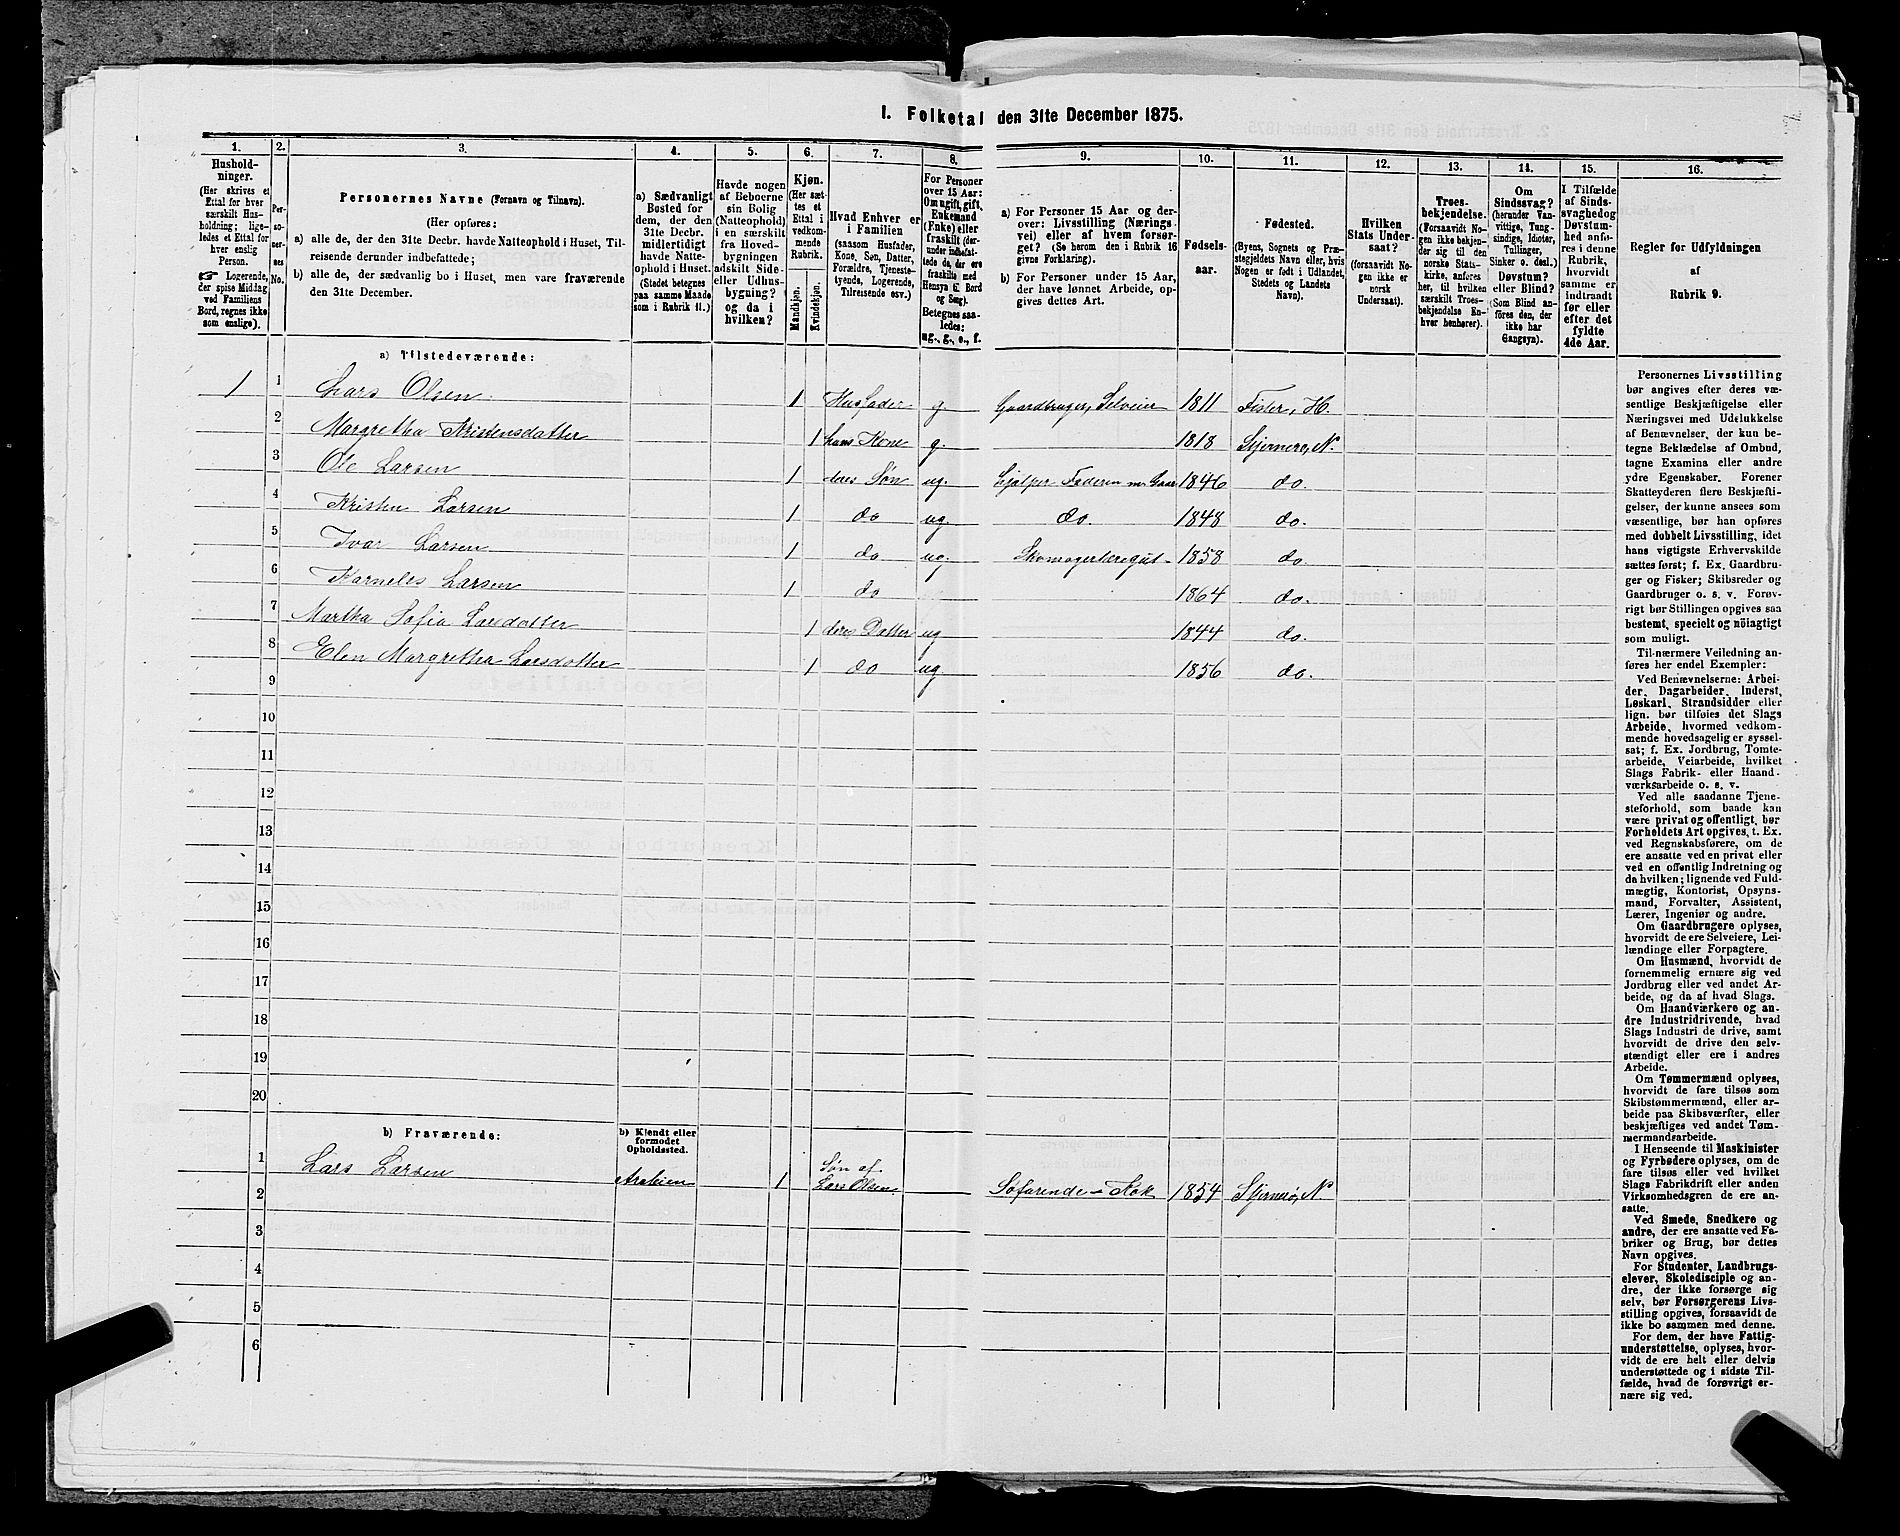 I. Folketal den 31te December 1875.
1. 2. 3. 4. 5. 6. 7. 8. 9. 10. 11. 12. 13. 14. 15. 16.
Hushold-
ninger.
(Her skrives et
Ettal for hver
særskilt Hus-
holdning; lige-
ledes et Ettal for
hver enslig
Person.
☞ Logerende,
der spise Middag
ved Familiens
Bord, regnes ikke
som enslige).
Per-
so-
ner-
nes
No.
Personernes Navne (Fornavn og Tilnavn).
(Her opføres:
a) alle de, der den 31te Decbr. havde Natteophold i Huset, Til-
reisende derunder indbefattede;
b) alle de, der sædvanlig bo i Huset, men vare fraværende
den 31te December.
a) Sædvanligt
Bosted for
dem, der den
31te Decbr.
midlertidigt
havde Natte-
ophold i Huset.
(Stedet betegnes
paa samme Maade
som i Rubrik 11.)
Havde nogen
af Beboerne
sin Bolig
(Natteophold)
i en særskilt
fra Hoved-
bygningen
adskilt Side-
eller Udhus-
bygning?
og da i
hvilken?
Kjøn.
(Her sæt-
tes et
Ettal i
vedkom-
mende
Rubrik.
Mandkjøn.
Kvindekjøn.
Hvad Enhver er
i Familien
(saasom Husfader,
Kone, Søn, Datter,
Forældre, Tjeneste-
tyende, Logerende,
Tilreisende osv.)
For Personer
over 15 Aar:
Om ugift, gift,
Enkemand
(Enke) eller
fraskilt (der-
under indbefat-
tede de, der ere
fraskilte med
Hensyn til Bord
og Seng).
Betegnes saa-
ledes:
ug., g., e., f.
a) For Personer 15 Aar og der-
over: Livsstilling (Nærings-
vei) eller af hvem forsør-
get? (Se herom den i Rubrik 16
givne Forklaring).
b) For Personer under 15 Aar,
der have lønnet Arbeide, op-
gives dettes Art.
Fødsels-
aar.
Fødested.
(Byens, Sognets og Præ-
stegjeldets Navn eller, hvis
Nogen er født i Udlandet,
Stedets og Landets
Navn).
Hvilken
Stats Under-
saat?
(forsaavidt No-
gen ikke er
norsk
Undersaat).
Troes-
bekjendelse.
(Forsaavidt No-
gen ikke bekjen-
der sig til den
norske Stats-
kirke, anføres
her, til hvilken
særskilt Troes-
bekjendelse En-
hver henhører).
Om
Sindssvag?
(herunder Van-
vittige, Tung-
sindige, Idioter,
Tullinger,
Sinker o. desl.)
Døvstum?
eller Blind?
(Som Blind an-
føres den, der
ikke har
Gangsyn).
I Tilfælde
af Sinds-
svaghed og
Døvstum-
hed anfø-
res i denne
Rubrik,
hvorvidt
samme er
indtraadt
før eller
efter det
fyldte
4de Aar.
Regler for Udfyldningen
af
Rubrik 9.
a) Tilstedeværende:
1 1 Lars Olsen 1 Husfader g Gaardbruger, Selveier 1811 Fister, H.
2 Margretha Kristensdatter 1 hans Kone g. 1818 Stjernerø, N.
3 Ole Larsen 1 deres Søn ug. hjælper Faderen m. Gaar 1846 do.
4 Kristen Larsen 1 do ug. do. 1848 do.
5 Ivar Larsen 1 do ug. Skomagerlæregut 1858 do.
6 Karneles Larsen 1 do 1864 do.
7 Martha Sofia Larsdatter 1 deres Datter ug 1844 do.
8 Elen Margretha Larsdatter 1 do ug. 1856 do.
9
10
11
12
13
14
15
16
17
18
19
20
b) Fraværende:
b) Kjendt eller
formodet
Opholdssted.
1 Lars Larsen Arabien 1 Søn af
Lars Olsen Søfarende - Kok 1854 Stjernerø, N
2
3
4
5
6
Personernes Livsstilling
bør angives efter deres væ-
sentlige Beskjæftigelse eller
Næringsvei med Udelukkelse
af Benævnelser, der kun be-
tegne Beklædelse af Ombud,
tagne Examina eller andre
ydre Egenskaber. Forener
Skatteyderen flere Beskjæfti-
gelser, der kunne ansees som
væsentlige, bør han opføres
med dobbelt Livsstilling, idet
hans vigtigste Erhvervskilde
sættes først; f. Ex. Gaardbru-
ger og Fisker; Skibsreder og
Gaardbruger o. s. v. Forøv-
rigt bør Stillingen opgives saa
bestemt, specielt og nöiagtigt
som muligt.
Til nærmere Veiledning an-
føres her endel Exempler:
Ved Benævnelserne: Arbei-
der, Dagarbeider, Inderst,
Løskarl, Strandsidder eller
lign. bør tilføies det Slags
Arbeide, hvormed vedkom-
mende hovedsagelig er syssel-
sat; f. Ex. Jordbrug, Tomte-
arbeide, Veiarbeide, hvilket
Slags Fabrik- eller Haand-
værksarbeide o. s. v.
Ved alle saadanne Tjene-
steforhold, som baade kan
være privat og offentligt, bør
Forholdets Art opgives, t. Ex.
ved Regnskabsførere, om de
ere ansatte ved en privat eller
ved en offentlig Indretning og
da hvilken; lignende ved Fuld-
mægtig, Kontorist, Opsyns-
mand, Forvalter, Assistent,
Lærer, Ingeniør og andre.
Om Gaardbrugere oplyses,
hvorvidt de ere Selveiere, Lei-
lændinge eller Forpagtere.
Om Husmænd, hvorvidt de
fornemmelig ernære sig ved
Jordbrug eller ved andet Ar-
beide, og da af hvad Slags.
Om Haandværkere og an-
dre Industridrivende, hvad
Slags Industri de drive, samt
hvorvidt de drive den selv-
stændigt eller ere i andres
Arbeide.
Om Tømmermænd oplyses,
hvorvidt de fare tilsøs som
Skibstømmermænd, eller ar-
beide paa Skibsværfter, eller
beskjæftiges ved andet Tøm-
mermandsarbeide.
I Henseende til Maskinister
og Fyrbødere oplyses, om de
fare tilsøs eller ved hvilket
Slags Fabrikdrift eller anden
Virksomhedsgren de ere an-
satte.
Ved Smede, Snedkere og
andre, der ere ansatte ved Fa-
briker og Brug, bør dettes
Navn opgives.
For Studenter, Landbrugs-
elever, Skoledisciple og an-
dre, der ikke forsørge sig
selv, bør Forsørgerens Livs-
stilling opgives, forsaavidt de
ikke bo sammen med denne.
For dem, der have Fattig-
understøttelse, oplyses, hvor-
vidt de ere helt eller delvis
understøttede og i sidste Til-
fælde, hvad de forøvrigt er-
nære sig ved.